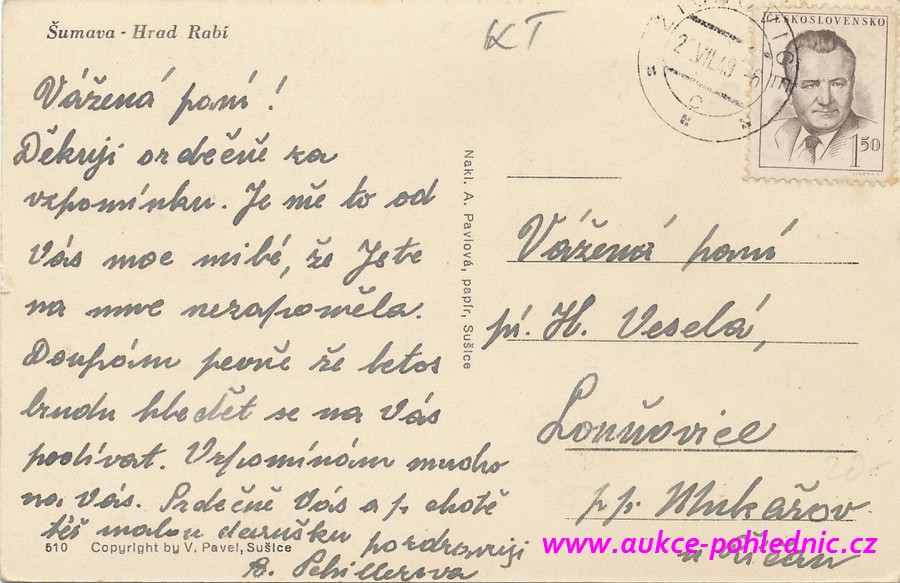 Šumava - Hrad Rabí
KT
ČESKOSLOVENSKO
2 .VII.49 -6
1 50
Vážená paní!
Děkuji srdečně za
vzpomínku. Je mě to od
Vás moc milé, že Jste
na mne nezapoměla.
Doufám pevně že letos
budu hledět se na Vás
podívat. Vzpomínám mucho
na Vás. Srdečně Vás a p. chotě
též malou darušku pozdravuji
B. Schillerova
510 Copyright by V. Pavel, Sušice
Nakl. A. Pavlová, papír, Sušice
Vážená paní
pí. H. Veselá,
Louňovice
p.p. Mukařov
u Říčan
20.-
www.aukce-pohlednic.cz